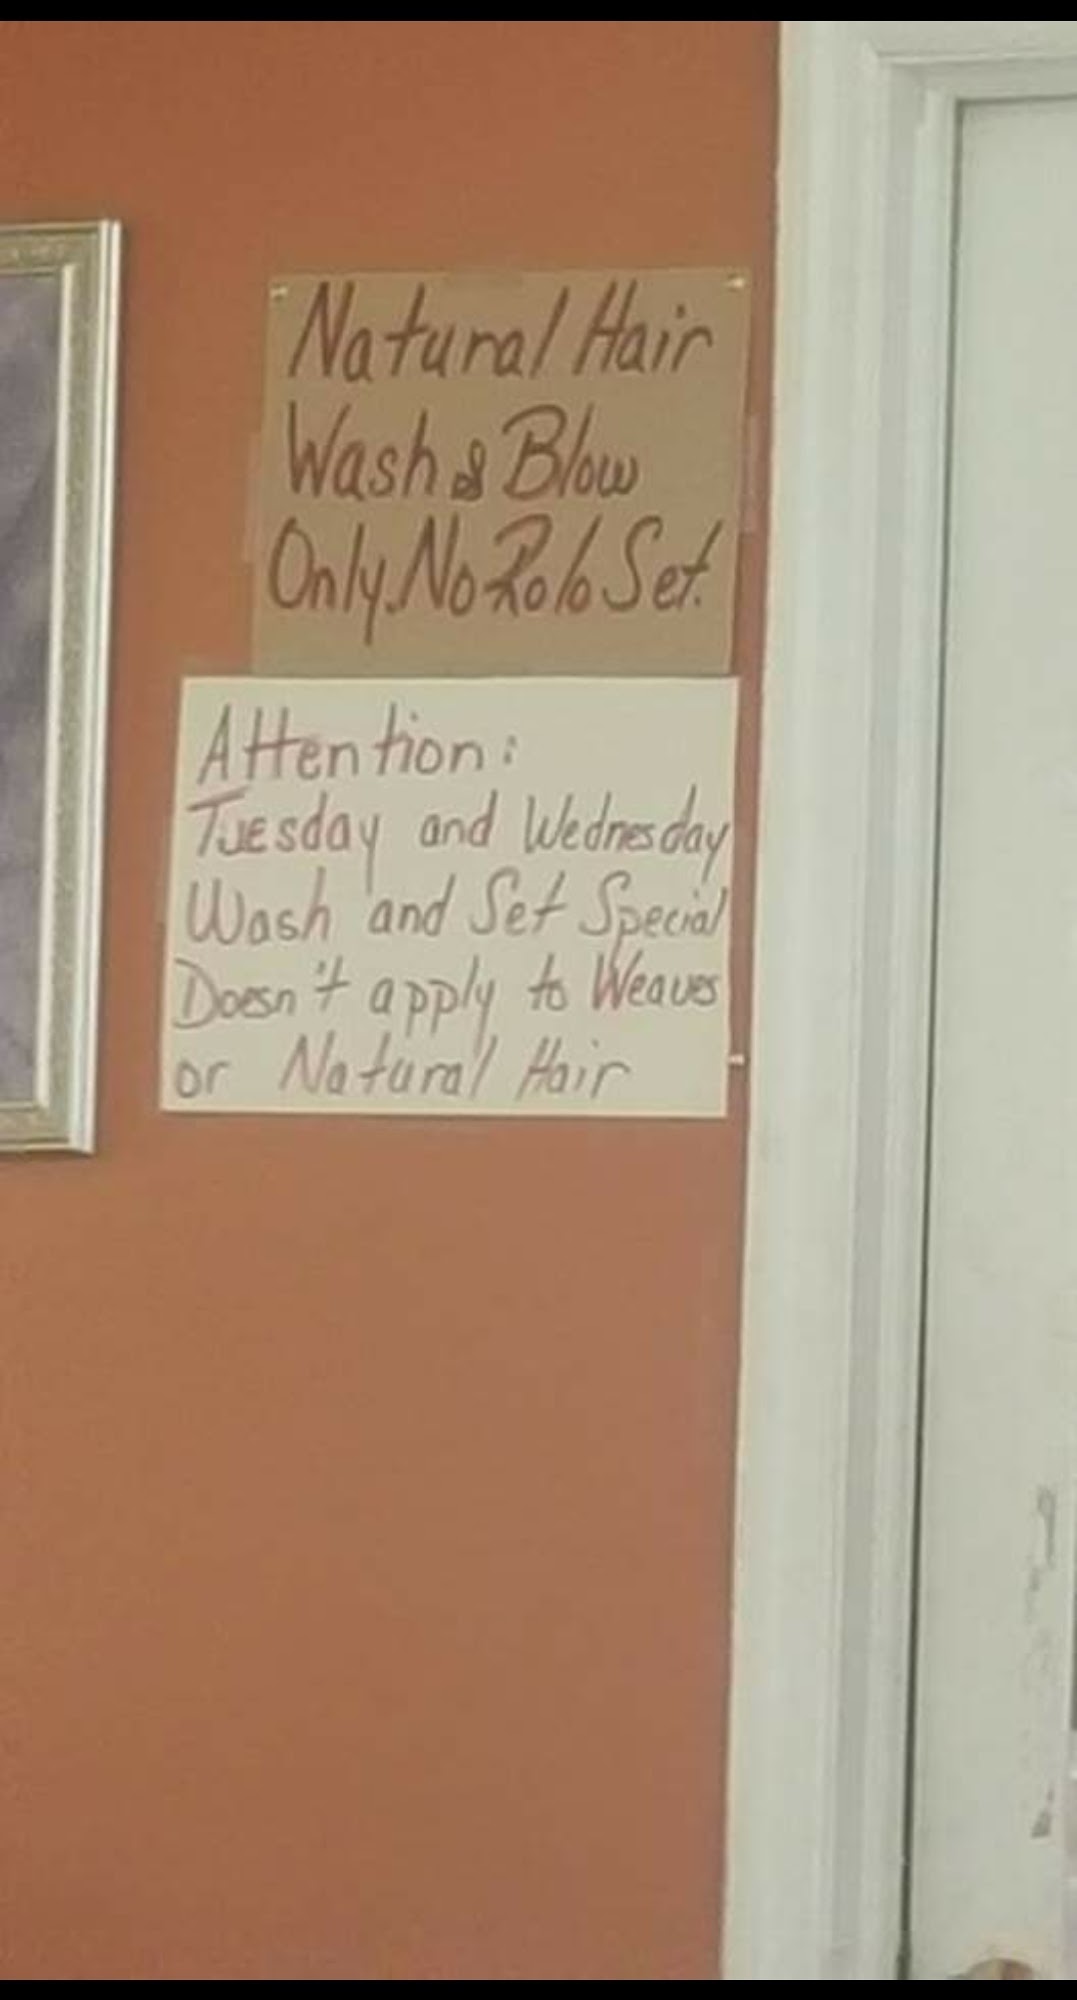 Natural Hair
Wash & Blow
Only. No Rolo Set.
Attention:
Tuesday and Wednesday
Wash and Set Special
Doesn't apply to Weaves
or Natural Hair